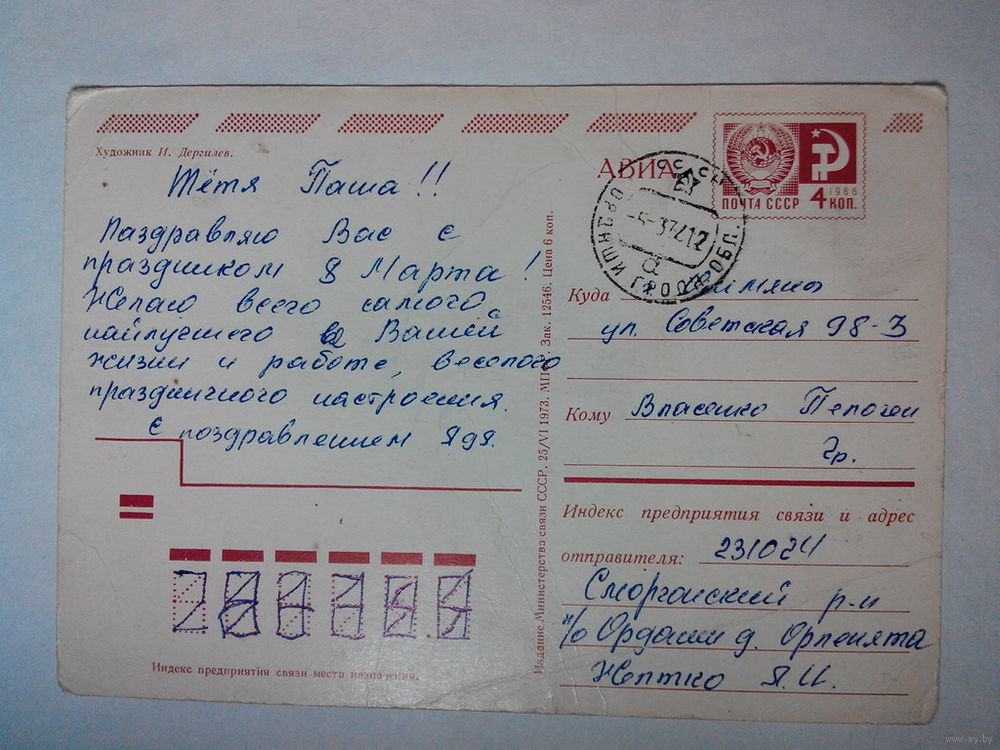 Художник И. Дергилев.
Тётя Паша!!
Паздравляю Вас с
праздником 8 Марта!
Желаю всего самого
наилучшего в Вашей
жизни и работе, веселого
праздничного настроения.
С поздравлением Ядя.
Индекс предприятия связи места назначения.
Издание Министерства связи СССР. 25/VI 1973. Зак. 12546. Цена 6 коп.
АВИА
ПОЧТА СССР
1966
4 КОП.
ОБЛ.
Куда
ул. Советская 98-3
Кому Власенко Пелогеи
Гр.
Индекс предприятия связи и адрес
отправителя: 231024
Сморгонский р-н
п/о Ордаши д. Орленята
Жептко Я.И.
www.ay.by